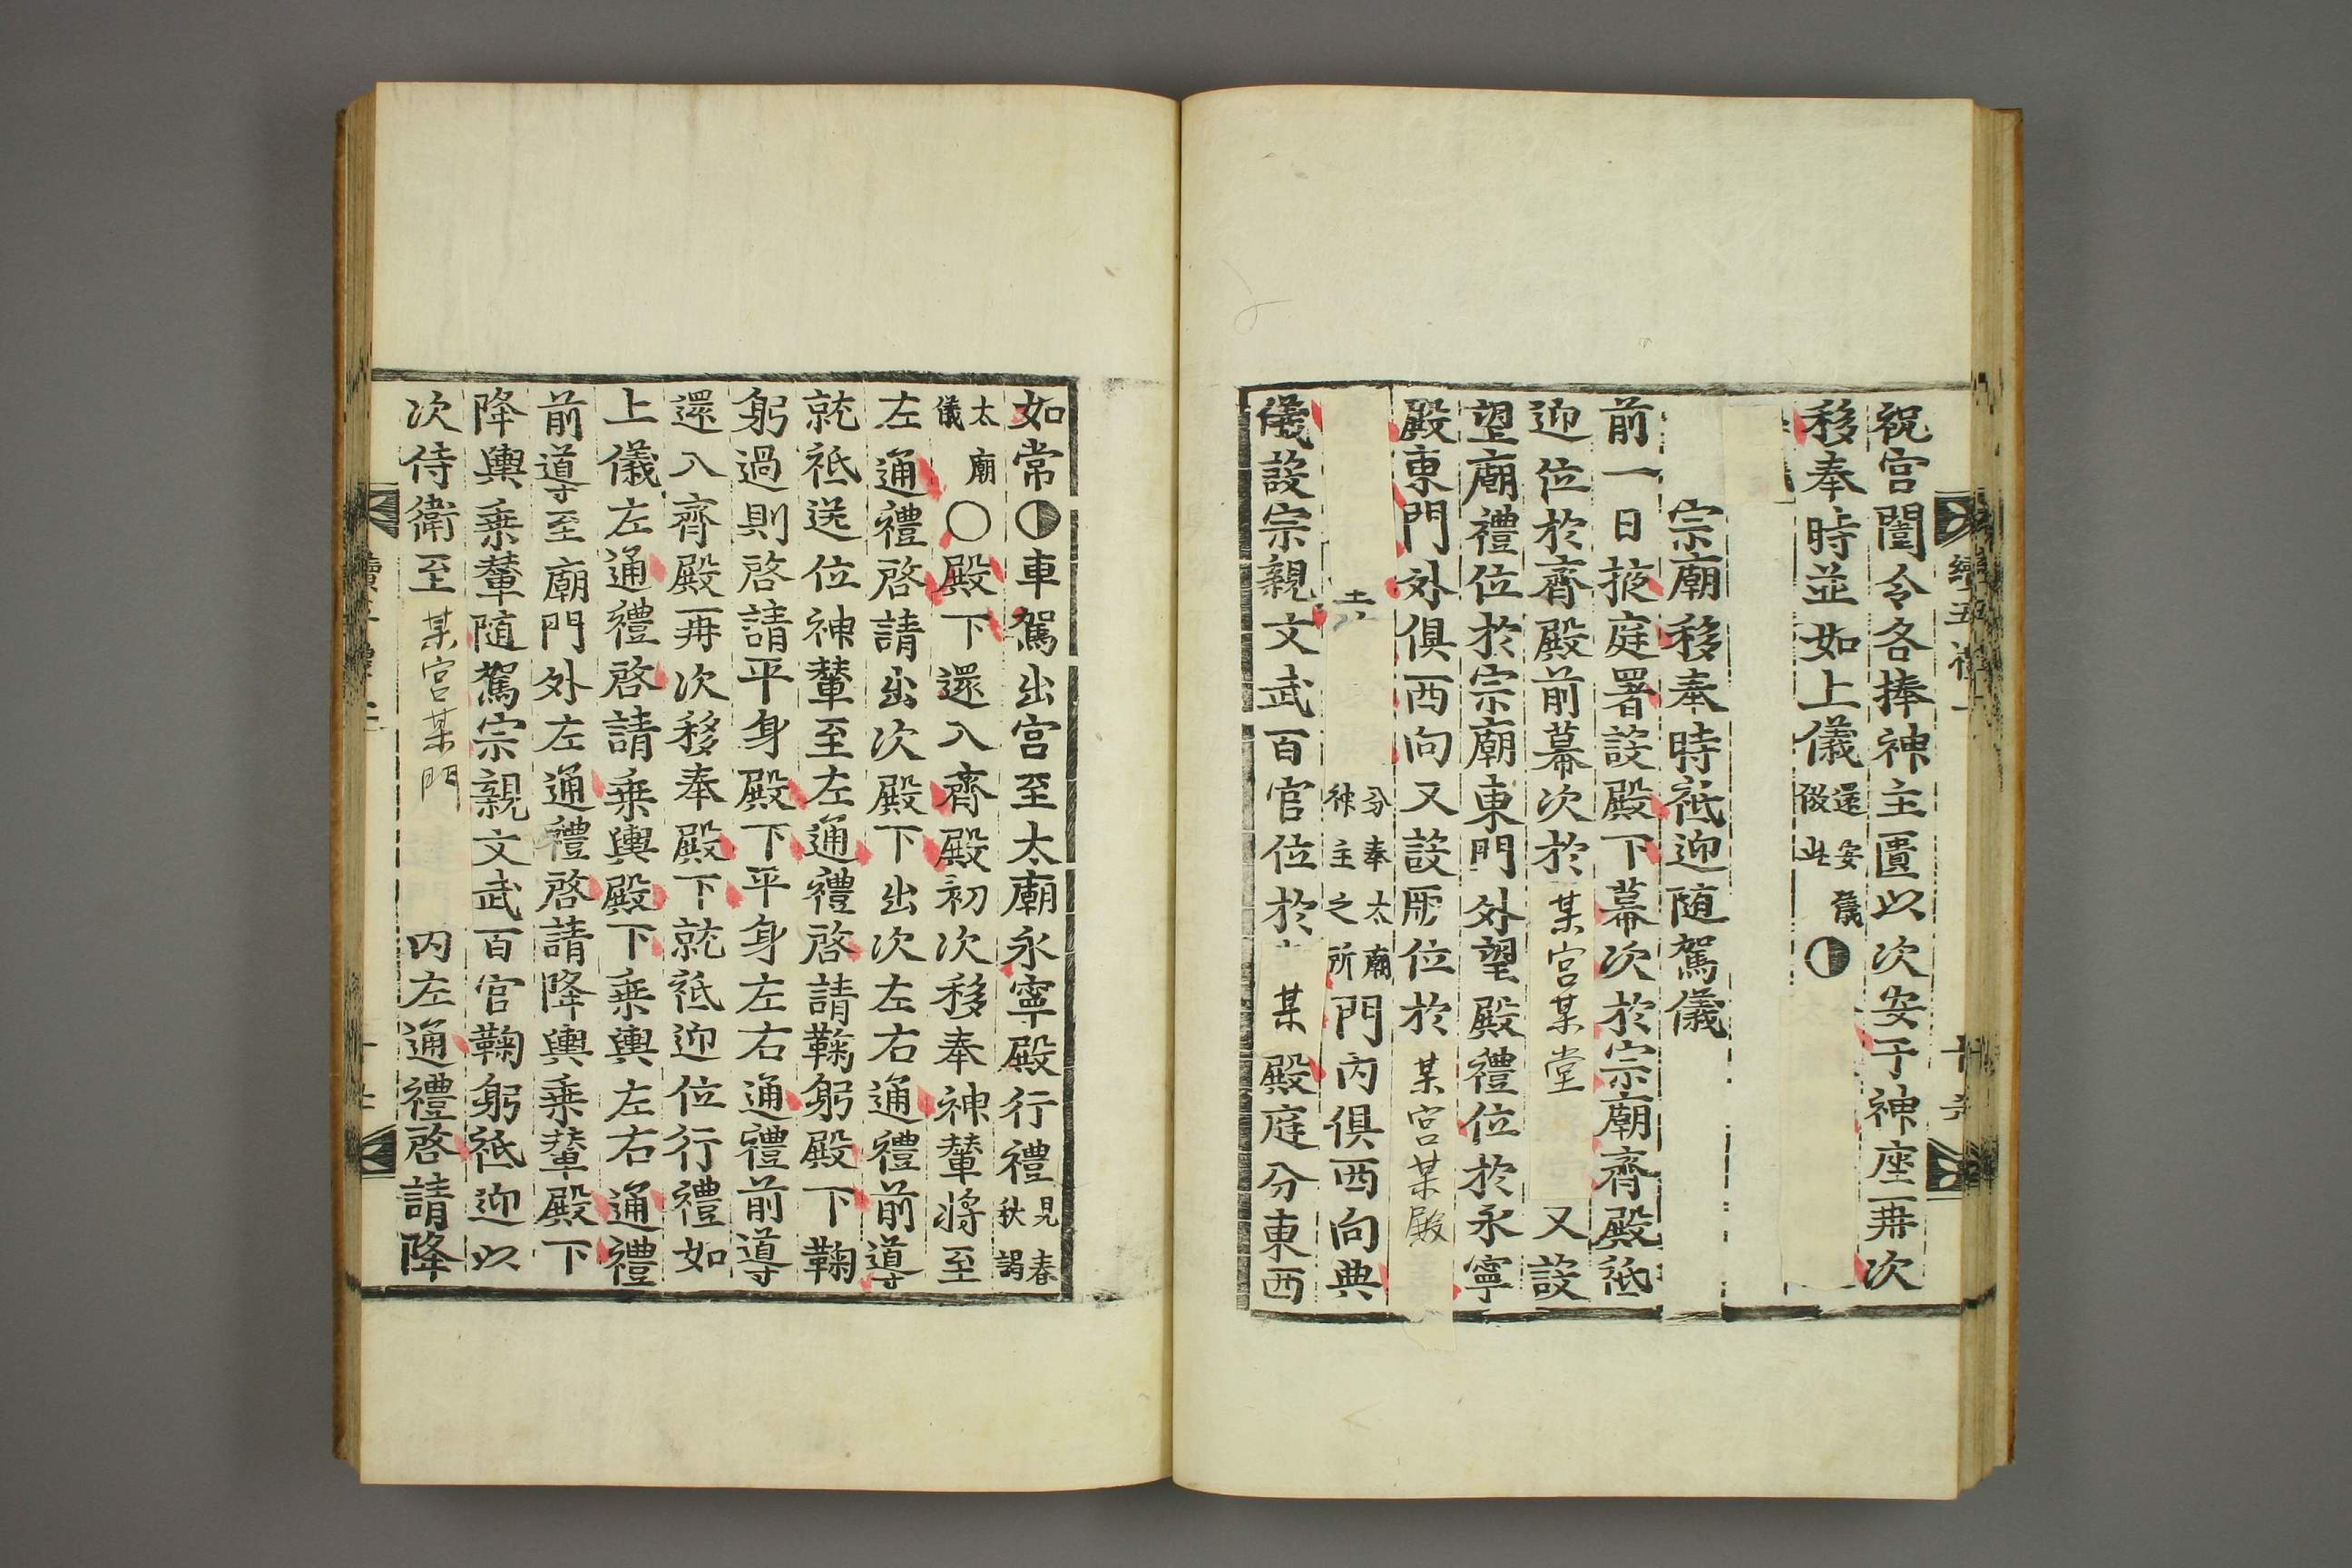 祝宮闈令各捧神主匱以次安于神座再次
移奉時並如上儀還安儀倣此◑
宗廟移奉時祗迎随駕儀
前一日掖庭署設殿下幕次於宗廟齊殿祗
迎位於齊殿前幕次於某宮某堂又設
望廟禮位於宗廟東門外望殿禮位於永寧
殿東門外俱西向又設位於某宮某殿
分奉太廟神主之所門内俱西向典
儀設宗親文武百官位於某殿庭分東西
如常◑車駕出宮至太廟永寧殿行禮見春秋謁
太廟儀○殿下還入齊殿初次移奉神輦将至
左通禮啓請出次殿下出次左右通禮前導
就祗送位神輦至左通禮啓請鞠躬殿下鞠
躬過則啓請平身殿下平身左右通禮前導
還入齊殿再次移奉殿下就祗迎位行禮如
上儀左通禮啓請乗輿殿下乗輿左右通禮
前導至廟門外左通禮啓請降輿乗輦殿下
降輿乗輦随駕宗親文武百官鞠躬祗迎以
次侍衛至某宮某門内左通禮啓請降